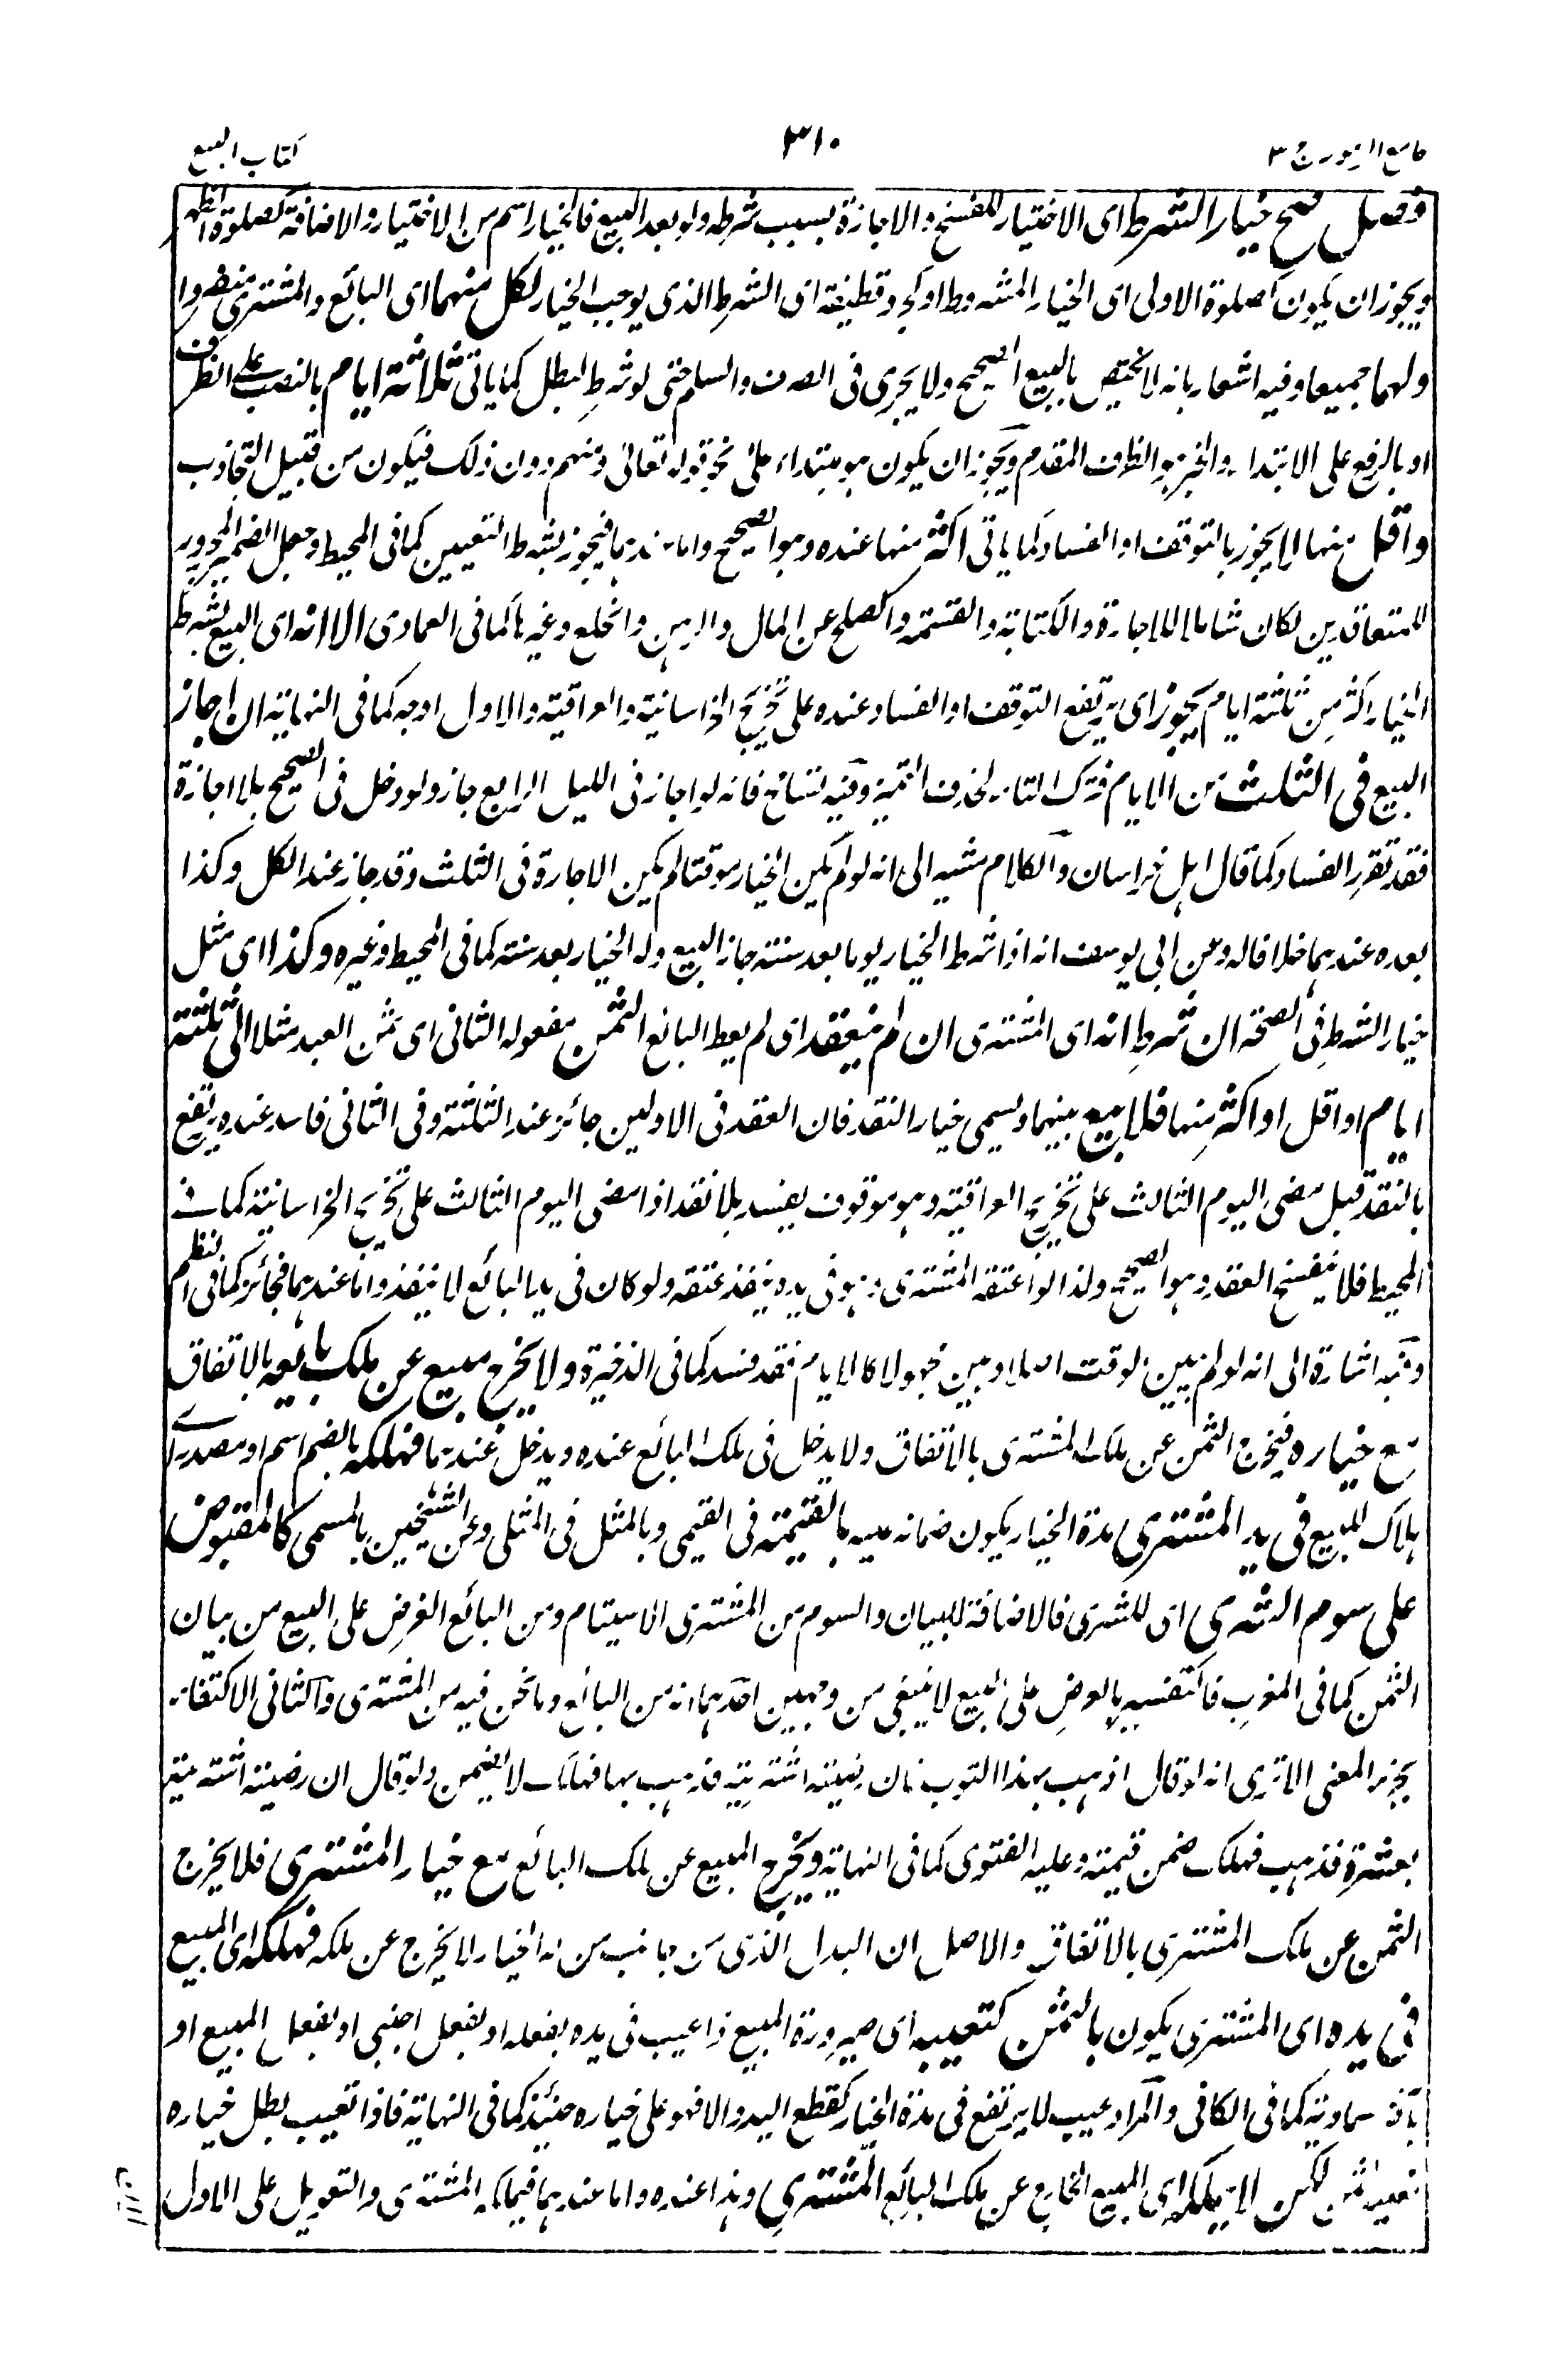 جامع الرموز ج ٣
٣١٠
كتاب البيع
فصل صح خيار الشرط اى الاختيار للفسخ والاجازة بسبب شرطه ولو بعد البيع فالخيار اسم من الاختيار والاضافة كصلوة الظهر
ويجوز ان يكون كصلوة الاولى اى الخيار المشروط او كجرد قطيفة اى الشرط الذى يوجب الخيار لكل منهما اى البائع والمشترى منفردا
ولهما جميعا وفيه اشعار بانه لا يختص بالبيع الصحيح ولا يجرى فى الصرف والسلم حتى لو شرط لبطل كما ياتى ثلاثة ايام بالنصب على الظرف
او بالرفع على الابتداء والخبر هو الظرف المقدم ويجوز ان يكون هو مبتداء على نحو قوله تعالى ومنهم دون ذلك فيكون من قبيل التجاذب
واقل منها لا يجوز بالتوقف او الفساد كما ياتى اكثر منها عنده وهو الصحيح واما عندهما فيجوز بشرط التعيين كما فى المحيط وجعل الضمير المجرور
للمتعاقدين لكان شاملا للاجارة والكتابة والقسمة والصلح عن المال والرهن والخلع وغيرها كما فى العمادى الا انه اى البيع بشرط
الخيار اكثر من ثلثة ايام يجوز اى يرتفع التوقف او الفساد عنده على تخريج الخراسانية والعراقية والاول اوجه كما فى النهاية ان اجاز
البيع فى الثلث من الايام فترك التاء لحذف المميز وفيه تسامح فانه لو اجاز فى الليل الرابع جاز ولو دخل فى الصبح بلا اجازة
فقد تقرر الفساد كما قال اهل خراسان والكلام مشير الى انه لو لم يكن الخيار موقتا لم يكن الاجارة فى الثلث وقد جاز عند الكل وكذا
بعده عندهما خلافا له وعن ابى يوسف انه اذا شرط الخيار يوما بعد سنة جاز البيع وله الخيار بعد سنة كما فى المحيط وغيره وكذا اى مثل
خيار الشرط فى الصحة ان شرط انه اى المشترى ان لم ينقد اى لم يعط البائع الثمن مفعوله الثانى اى ثمن العبد مثلا الى ثلثة
ايام او اقل او اكثر منها فلا بيع بينهما ويسمى خيار النقد فان العقد فى الاولين جائز عند الثلثة وفى الثانى فاسد عنده يرتفع
بالنقد قبل مضى اليوم الثالث على تخريج العراقية وهو موقوف يفسد بلا نقد اذا مضى اليوم الثالث على تخريج الخراسانية كما فى
المحيط فلا ينفسخ العقد وهو الصحيح ولذا لو اعتقه المشترى وهو فى يده ينفذ عتقه ولو كان فى يد البائع لا ينفذ واما عندهما فجائز كما فى النظم
وفيه اشارة الى انه لو لم يبين الوقت اصلا او بين مجهولا كالايام فقد فسد كما فى الذخيرة ولا يخرج مبيع عن ملك بائعه بالاتفاق
مع خياره فيخرج الثمن عن ملك المشترى بالاتفاق ولا يدخل فى ملك البائع عنده ويدخل عندهما فهلكه بالضم اسم او مصدر اى
هلاك المبيع فى يد المشترى مدة الخيار يكون ضمانه عليه بالقيمة فى القيمى وبالمثل فى المثلى وعن الشيخين بالمسمى كالمقبوض
على سوم الشرى اى للشرى فالاضافة للبيان والسوم من المشترى الاستيام ومن البائع العرض على البيع من بيان
الثمن كما فى المغرب فاكتفسيه بالعرض على البيع لا ينبغى من وجهين احدهما انه من البائع وما نحن فيه من المشترى والثانى الاكتفاء
بجزء المعنى الا ترى انه لو قال اذهب بهذا الثوب فان رضيته اشتريته فذهب بها فهلك لا يضمن ولو قال ان رضيته اشتريته
بعشرة فذهب فهلك ضمن قيمته وعليه الفتوى كما فى النهاية ويخرج المبيع عن ملك البائع مع خيار المشترى فلا يخرج
الثمن عن ملك المشترى بالاتفاق والاصل ان البدل الذى من جانب من له الخيار لا يخرج عن ملكه فهلكه اى المبيع
فى يده اى المشترى يكون بالثمن كتعيبه اى صيرورة المبيع ذا عيب فى يده بفعله او بفعل اجنبى او بفعل المبيع او
بآفة سماوية كما فى الكافى والمراد عيب لا يرتفع فى مدة الخيار كقطع اليد والا فهو على خياره حينئذ كما فى النهاية فاذا تعيب بطل خياره
لكن لا يملكه اى المبيع الخارج عن ملك البائع المشترى وهذا عنده واما عندهما فيملكه المشترى والتعويل على الاول